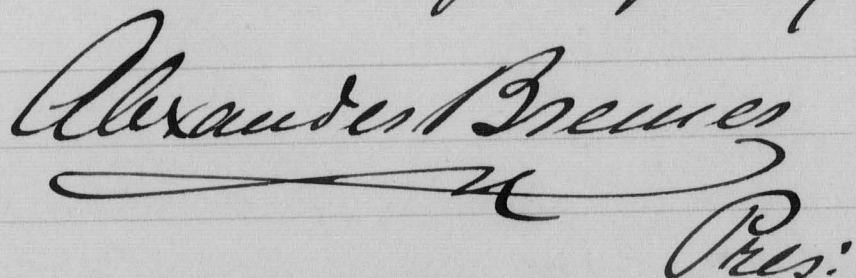 Alexander Bremer
Pres: